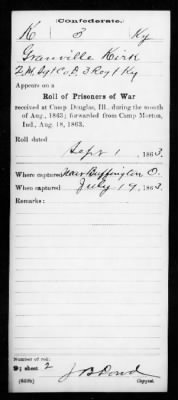 Confederate.
K 3 Ky
Granville Kirk
Q.M. Sgt Co. D. 3 Reg't Ky
Appears on a
Roll of Prisoners of War
received at Camp Douglas, Ill., during the month
of Aug., 1863; forwarded from Camp Morton,
Ind., Aug. 18, 1863.
Roll dated
Sept 1, 1863.
Where captured Near Buffington O.
When captured July 19, 1863.
Remarks:
Number of roll:
9; sheet 2
Copyist.